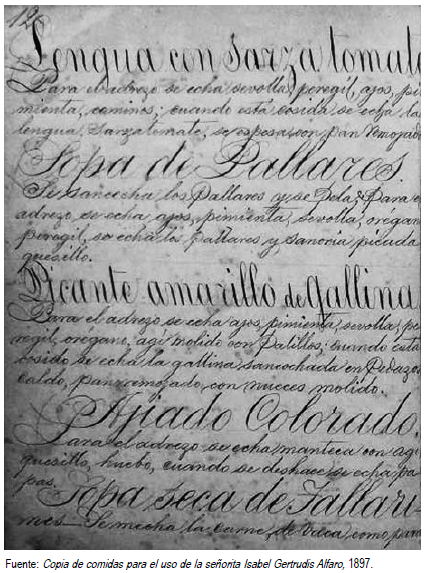 12
Lengua con sarza tomate
Para el adrezo se echa sevolla, peregil, ajos, pi
mienta, cominos; cuando está cosida se echa la
lengua, Sarza tomate, se espesa con pan remojado
Sopa de Pallares.
Se sancocha los Pallares y se Pela. Para el
adrezo, se echa ajos, pimienta, sevolla, oregano
peregil, se echa los pallares y sanoria picada
quesillo.
Picante amarillo de Gallina
Para el adrezo se echa ajos, pimienta, sevolla, pe
regil, orégano, agi molido con Palillos; cuando está
cosido se echa la gallina sancochada en Pedazos
caldo, pan remojado, con nueces molido.
Ajiado Colorado.
Para el adrezo se echa manteca con agi
quesillo, huebo, cuando se deshace se echa pa
pas.
Sopa seca de Tallari
nes Se mecha la carne, de Vaca como para
Fuente: Copia de comidas para el uso de la señorita Isabel Gertrudis Alfaro, 1897.